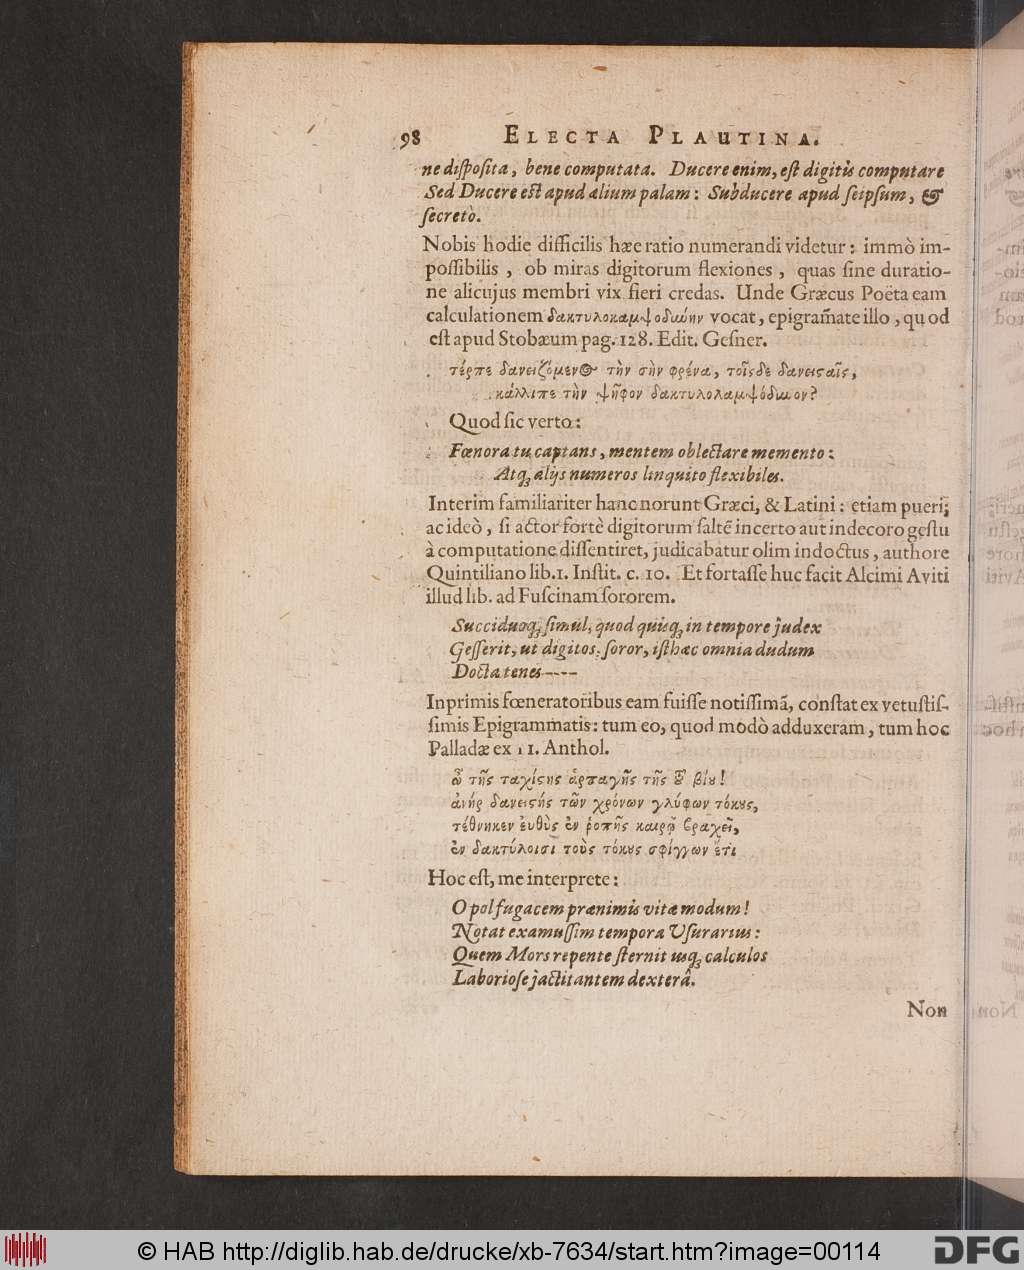 98 ELECTA PLAUTINA.
ne disposita, bene computata. Ducere enim, est digitis computare
Sed Ducere est apud alium palam: Subducere apud seipsum, &
secretò.
Nobis hodie difficilis hæc ratio numerandi videtur: immò im-
possibilis, ob miras digitorum flexiones, quas sine duratio-
ne alicujus membri vix fieri credas. Unde Græcus Poëta eam
calculationem δακτυλοκαμψοδώην vocat, epigram̃ate illo, quod
est apud Stobæum pag. 128. Edit. Gesner.
τέρπε δανειζόμενος τὴν σὴν φρένα, τοῖςδε δανειςαῖς,
κάλλιπε τὴν ψῆφον δακτυλολαμψόδωον?
Quod sic verto:
Fœnora tu captans, mentem oblectare memento:
Atq; alijs numeros linquito flexibiles.
Interim familiariter hanc norunt Græci, & Latini: etiam pueri;
ac ideò, si actor fortè digitorum saltẽ incerto aut indecoro gestu
à computatione dissentiret, judicabatur olim indoctus, authore
Quintiliano lib. 1. Instit. c. 10. Et fortasse huc facit Alcimi Aviti
illud lib. ad Fuscinam sororem.
Succiduoq; simul, quod quisq; in tempore judex
Gesserit, ut digitos, soror, isthæc omnia dudum
Docta tenes----
Inprimis fœneratoribus eam fuisse notissimã, constat ex vetustis-
simis Epigrammatis: tum eo, quod modò adduxeram, tum hoc
Palladæ ex 11. Anthol.
ὦ τῆς ταχίςης ἁρπαγῆς τῆς ȣ͂ βίȣ!
ἀνήρ δανειςής τῶν χρόνων γλύφων τόκȣς,
τέθνηκεν ἐυθὺς ἐν ῥοπῆς καιρῷ βραχεῖ,
ἐν δακτύλοισι τοὺς τόκȣς σφίγγων ἔτι
Hoc est, me interprete:
O pol fugacem prænimis vitæ modum!
Notat examussim tempora Usurarius:
Quem Mors repente sternit usq; calculos
Laboriose jactitantem dexterâ.
Non
© HAB http://diglib.hab.de/drucke/xb-7634/start.htm?image=00114
DFG